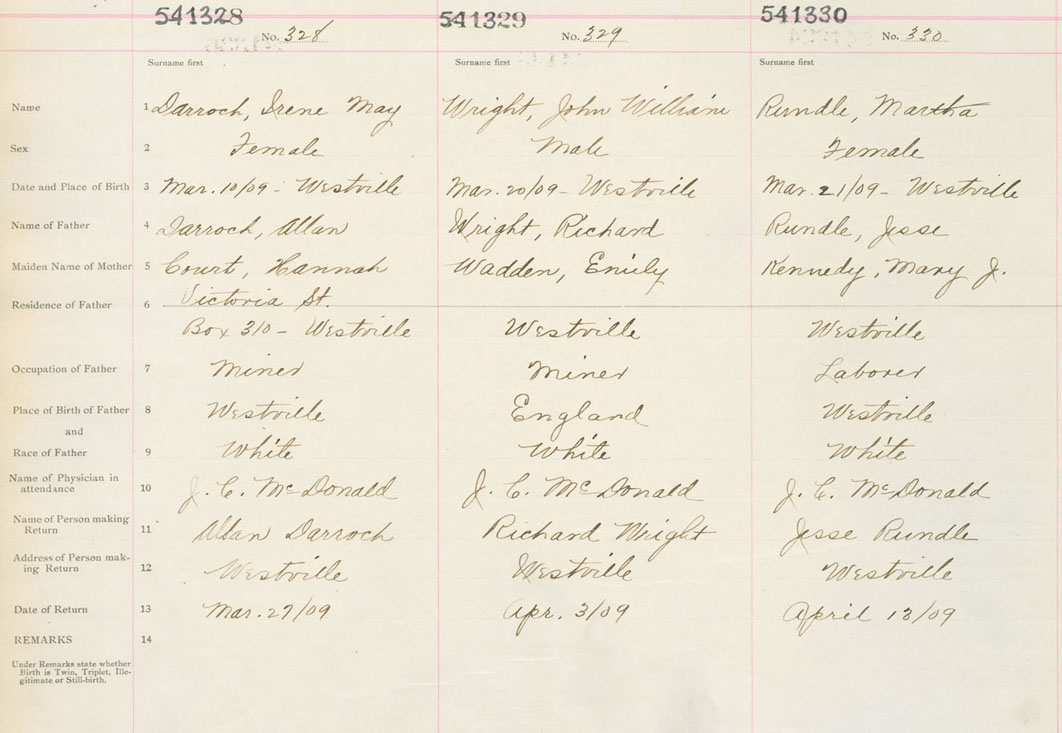 541328 541329 541330
No. 328 No. 329 No. 330
Surname first Surname first Surname first
Name 1 Darroch, Irene May Wright, John William Rundle, Martha
Sex 2 Female Male Female
Date and Place of Birth 3 Mar. 10/09 - Westville Mar. 20/09 - Westville Mar. 21/09 - Westville
Name of Father 4 Darroch, Allan Wright, Richard Rundle, Jesse
Maiden Name of Mother 5 Court, Hannah Wadden, Emily Kennedy, Mary J.
Residence of Father 6 Victoria St.
Box 310 - Westville Westville Westville
Occupation of Father 7 Miner Miner Laborer
Place of Birth of Father 8 Westville England Westville
and
Race of Father 9 White White White
Name of Physician in
attendance 10 J. C. McDonald J. C. McDonald J. C. McDonald
Name of Person making
Return 11 Allan Darroch Richard Wright Jesse Rundle
Address of Person mak-
ing Return 12 Westville Westville Westville
Date of Return 13 Mar. 27/09 Apr. 3/09 April 13/09
REMARKS 14
Under Remarks state whether
Birth is Twin, Triplet, Ille-
gitimate or Still-birth.